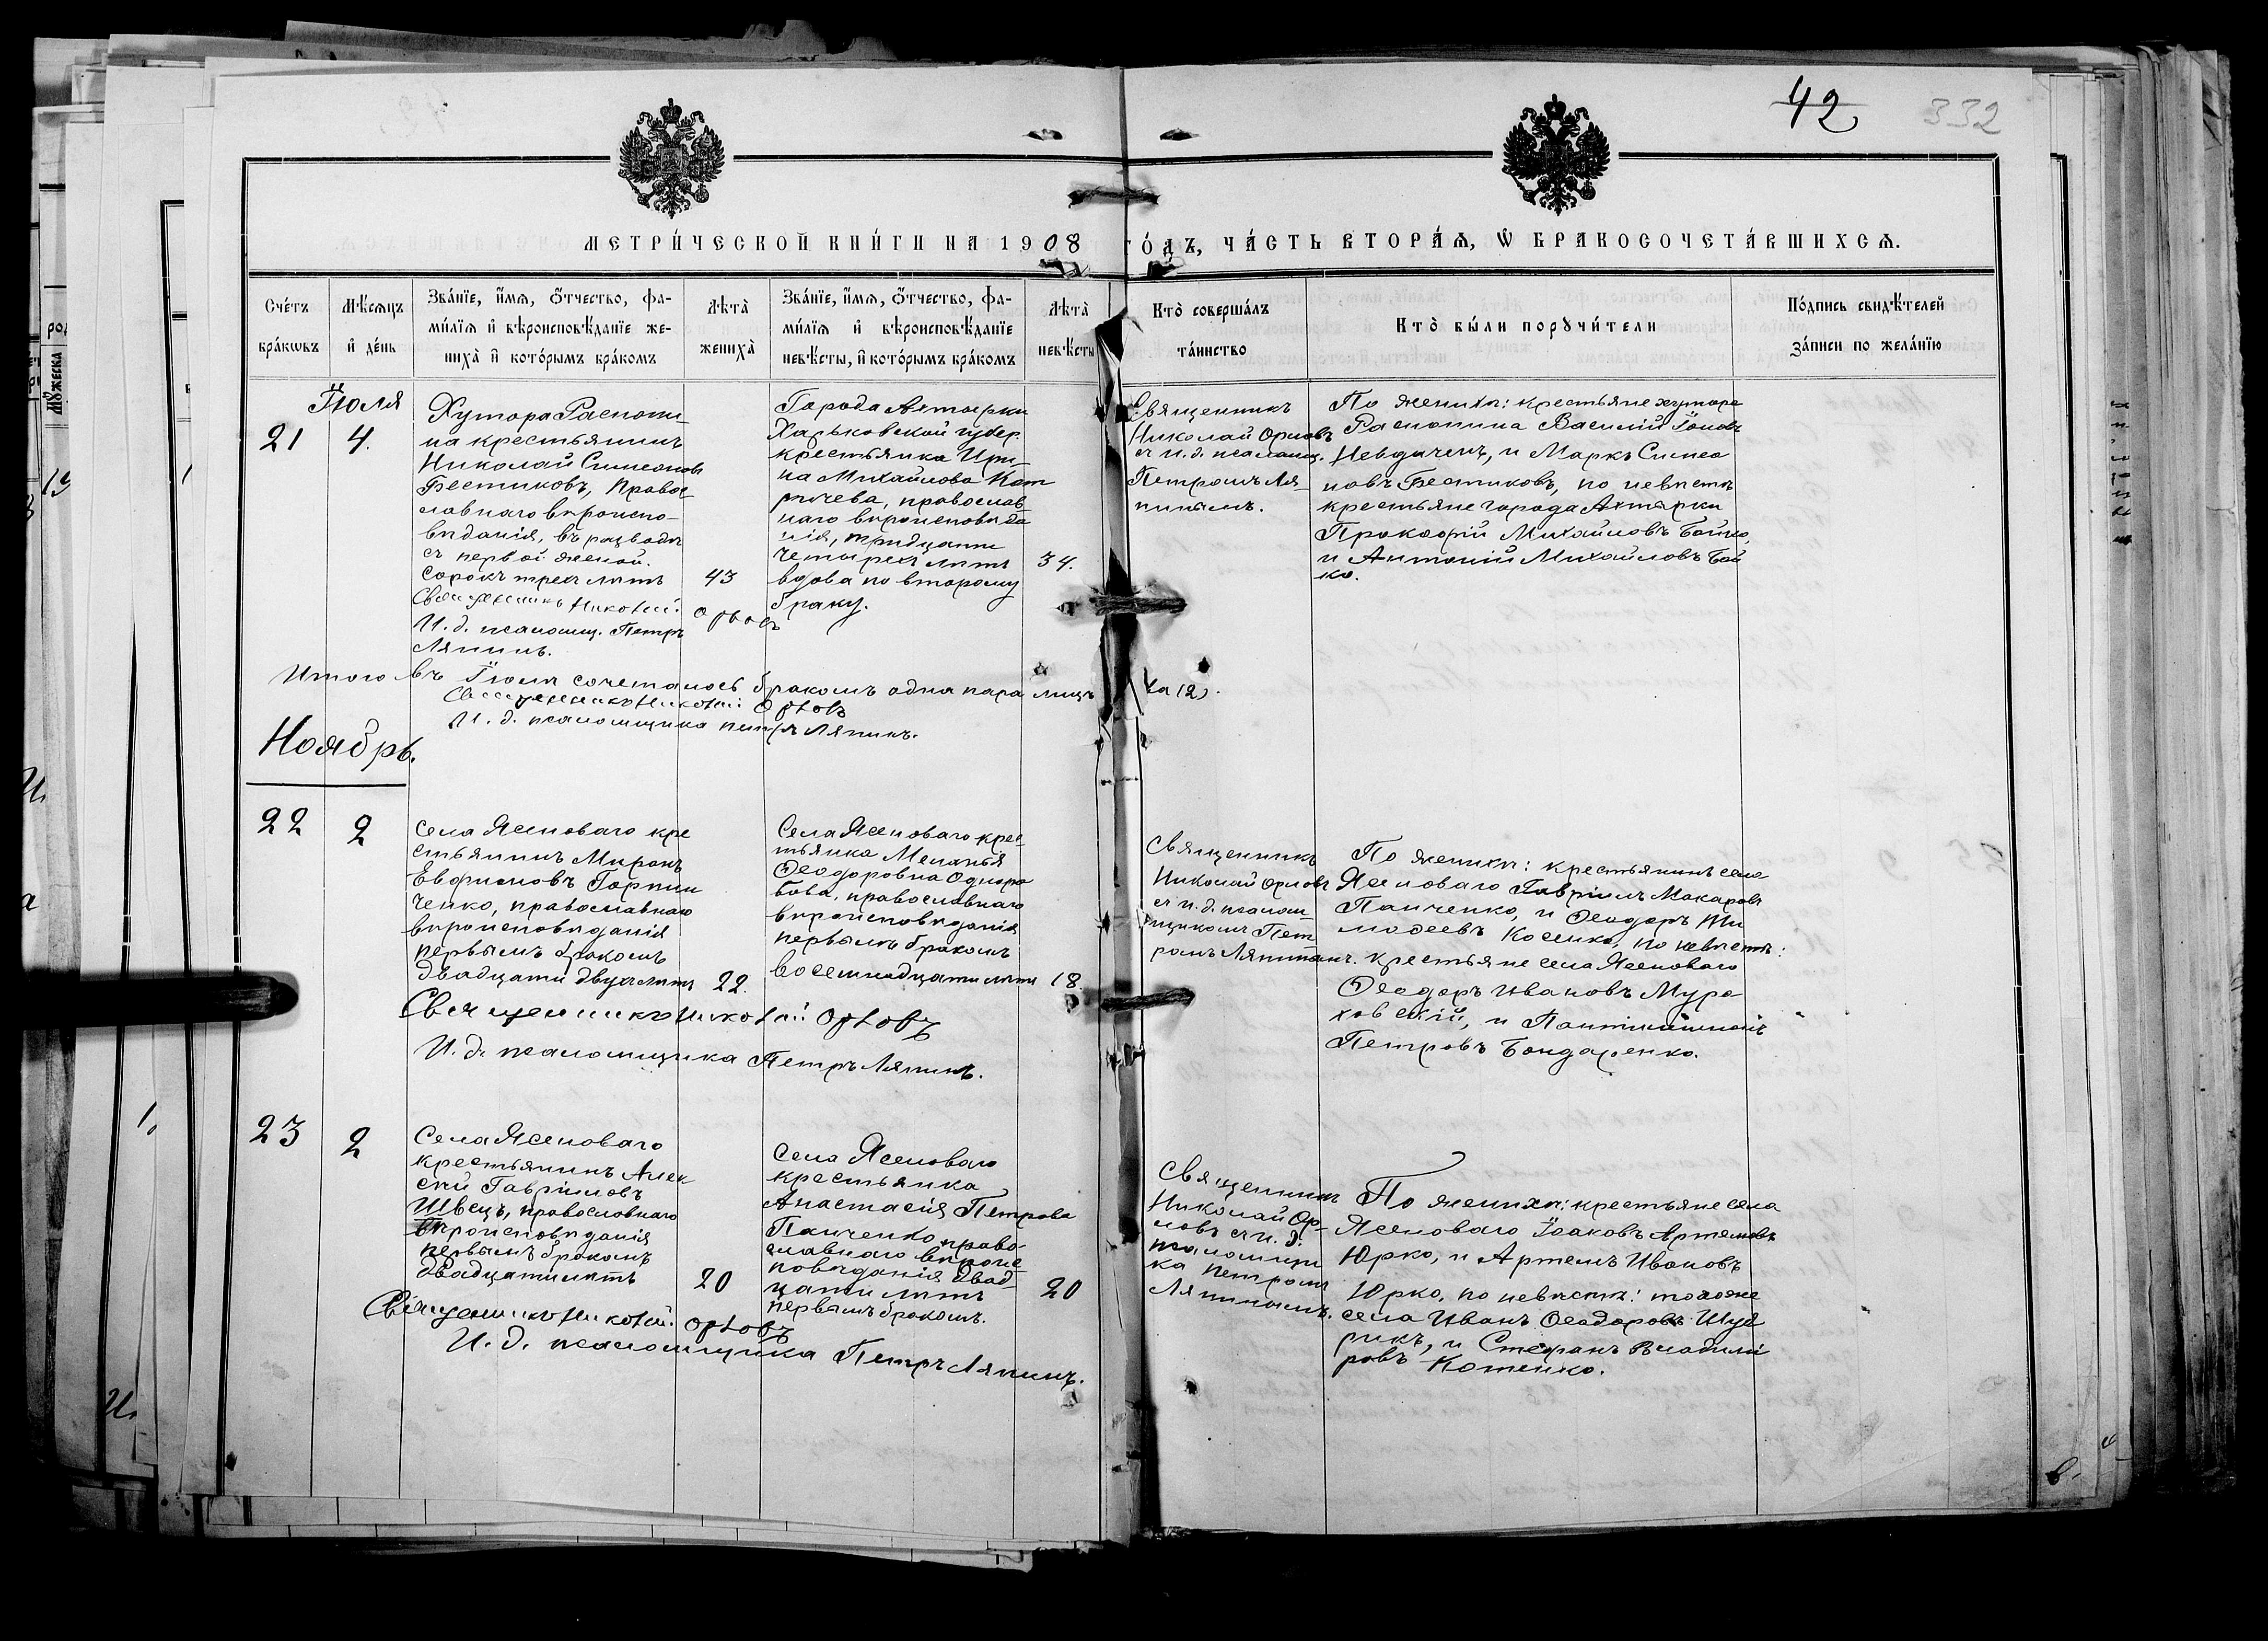 42
332
МЕТРИ́ЧЕСКОЙ КНИ́ГИ НА 1908 ГО́ДЪ, ЧА́СТЬ ВТОРА́Ѧ, Ѡ҆ БРАКОСОЧЕТА́ВШИХСѦ.
Сче́тъ бра́кѡвъ
Мѣ́сѧцъ и҆ де́нь
Зва́нїе, и҆́мѧ, ѻ҆́тчество, фа-
ми́лїѧ и҆ вѣроисповѣ́данїе же-
ниха̀ и҆ кото́рымъ бра́комъ
Лѣта̀ жениха̀
Зва́нїе, и҆́мѧ, ѻ҆́тчество, фа-
ми́лїѧ и҆ вѣроисповѣ́данїе
невѣ́сты, и҆ кото́рымъ бра́комъ
Лѣта̀ невѣ́сты
Кто̀ соверша́лъ та́инство
Кто̀ бы́ли порꙋчи́тели
По́дпись свидѣ́телей
за́писи по жела́нїю
Іюля
21
4.
Хутора Распопи-
на крестьянинъ
Николай Симеоновъ
Бестиковъ, Правос-
лавнаго вѣроиспо-
вѣданія, въ разводѣ
съ первой женой.
Сорокъ трехъ лѣтъ
43
Священникъ Николай Орловъ
И. д. псаломщ. Петръ
Ляпинъ.
Города Ахтырки
Харьковской губер.
крестьянка Ири-
на Михайлова
православ
наго вѣроисповѣда
нія, тридцати
четырехъ лѣтъ
34.
вдова по второму
браку.
Священникъ
Николай Орловъ
съ и. д. псаломщ.
Петромъ Ля-
пинымъ.
По женихѣ: крестьяне хутора
Распопина Василій Іоновъ
и Маркъ Симео
новъ Бестиковъ, по невѣстѣ
крестьяне города Ахтырки
Прокофій Михайловъ Бойко,
и Антоній Михайловъ Бой
ко.
Итого въ Іюлѣ сочеталось бракомъ одна пара лицъ
ка (2).
Священникъ Николай Орловъ
И. д. псаломщика Петръ Ляпинъ.
Ноябрь.
22
2
Села Ясеноваго кре
стьянинъ Миронъ
Евфимовъ Горпин
ченко, православнаго
вѣроисповѣданія
первымъ бракомъ
двадцати двухъ лѣтъ
22.
Села Ясеноваго крес-
тьянка Меланья
Ѳеодоровна Одноро
бова, православнаго
вѣроисповѣданія
первымъ бракомъ
восемнадцати лѣтъ
18.
Священникъ
Николай Орловъ
съ и. д. псалом-
щикомъ Пет-
ромъ Ляпинымъ.
По женихѣ: крестьянинъ села
Ясеноваго Гавріилъ Макаровъ
Панченко, и Ѳеодоръ Ти
моѳеевъ Косенко, по невѣстѣ:
крестьяне села Ясеноваго
Ѳеодоръ Ивановъ Мура-
ховскій, и Пантилимонъ
Петровъ Бондаренко.
Священникъ Николай Орловъ
И. д. псаломщика Петръ Ляпинъ.
23
2
Села Ясеноваго
крестьянинъ Алек
сѣй Гавріиловъ
Швецъ, православнаго
вѣроисповѣданія
первымъ бракомъ
двадцати лѣтъ
20
Села Ясеноваго
крестьянка
Анастасія Петрова
Панченко, право-
славнаго вѣроис-
повѣданія двад-
цати лѣтъ
20
первымъ бракомъ.
Священникъ
Николай Ор-
ловъ съ и. д.
псаломщи
ка Петромъ
Ляпинымъ.
По женихѣ: крестьяне села
Ясеноваго Іоаковъ Артемовъ
Юрко, и Артемъ Ивановъ
Юрко, по невѣстѣ: тогоже
села Иванъ Ѳеодоровъ
и Стефанъ Владимі
ровъ Котенко.
Священникъ Николай Орловъ
И. д. псаломщика Петръ Ляпинъ.